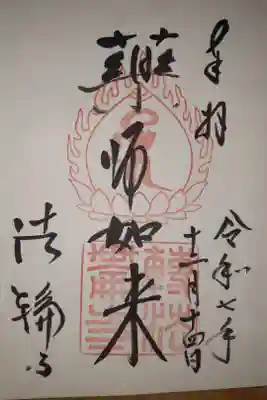 奉拝
令和七年
十二月十四日
薬師如来
法輪寺